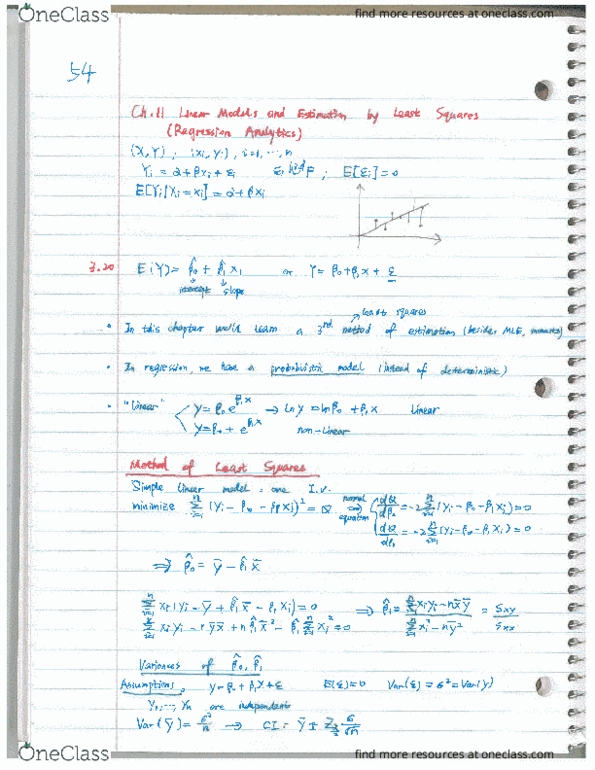 OneClass
find more resources at oneclass.com
54
Ch.11 Linear Models and Estimation by Least Squares
(Regression Analytics)
(X,Y), (xi, yi), i=1,...,n
Yi = α+βxi + εi εi iid F ; E[εi]=0
E[Yi|Xi=xi] = α+βxi
3.20 E(Y) = β̂0 + β̂1 x1 or Y = β0+β1x + ε
intercept slope
least squares
• In this chapter we'll learn a 3rd method of estimation (besides MLE, moments)
• In regression, we have a probabilistic model (instead of deterministic)
• "linear" y = β0 e^{β1x} → ln y = ln β0 + β1x linear
y = β0 + e^{β1x} non-linear
Method of Least Squares
Simple linear model: one I.V.
minimize Σ(i=1..n) (yi - β0 - β1xi)² = Q normal equation dQ/dβ0 = -2Σ(i=1..n)(yi - β0 - β1xi)=0
dQ/dβ1 = -2Σ(i=1..n)(yi - β0 - β1xi)=0
⇒ β̂0 = ȳ - β̂1x̄
Σ(i=1..n) xi(yi - ȳ + β̂1x̄ - β1xi)=0 ⇒ β̂1 = (Σ(i=1..n) xiyi - nx̄ȳ)/(Σ(i=1..n) xi² - nȳ²) = Sxy/Sxx
Σ(i=1..n) xiyi - nȳx̄ + nβ̂1x̄² - β̂1Σ(i=1..n) xi² = 0
Variances of β̂0, β̂1
Assumptions, y = β0 + β1x + ε E(ε)=0 Var(ε) = σ² = Var(y)
Y1,..., Yn are independents
Var(ȳ) = σ²/n → CI: ȳ ± Z_{α/2} σ/√n
OneClass
find more resources at oneclass.com